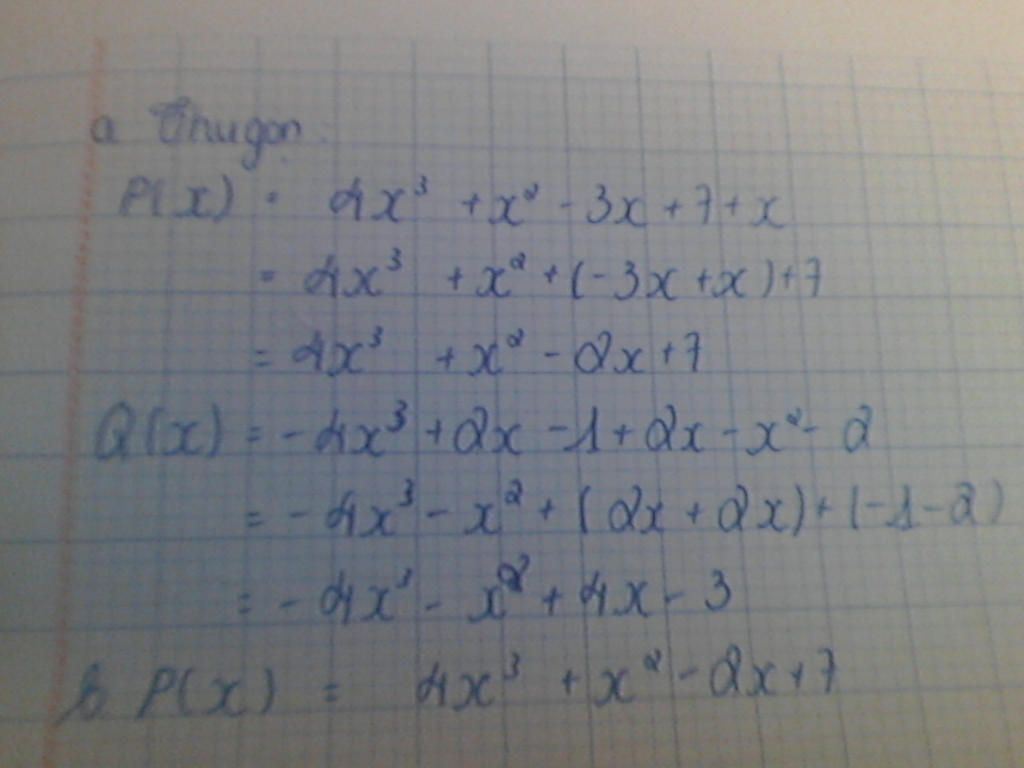 a Thu gọn:
P(x) = 4x³ + x² - 3x + 7 + x
= 4x³ + x² + (-3x + x) + 7
= 4x³ + x² - 2x + 7
Q(x) = -4x³ + 2x - 1 + 2x - x² - 2
= -4x³ - x² + (2x + 2x) + (-1 - 2)
= -4x³ - x² + 4x - 3
b. P(x) = 4x³ + x² - 2x + 7